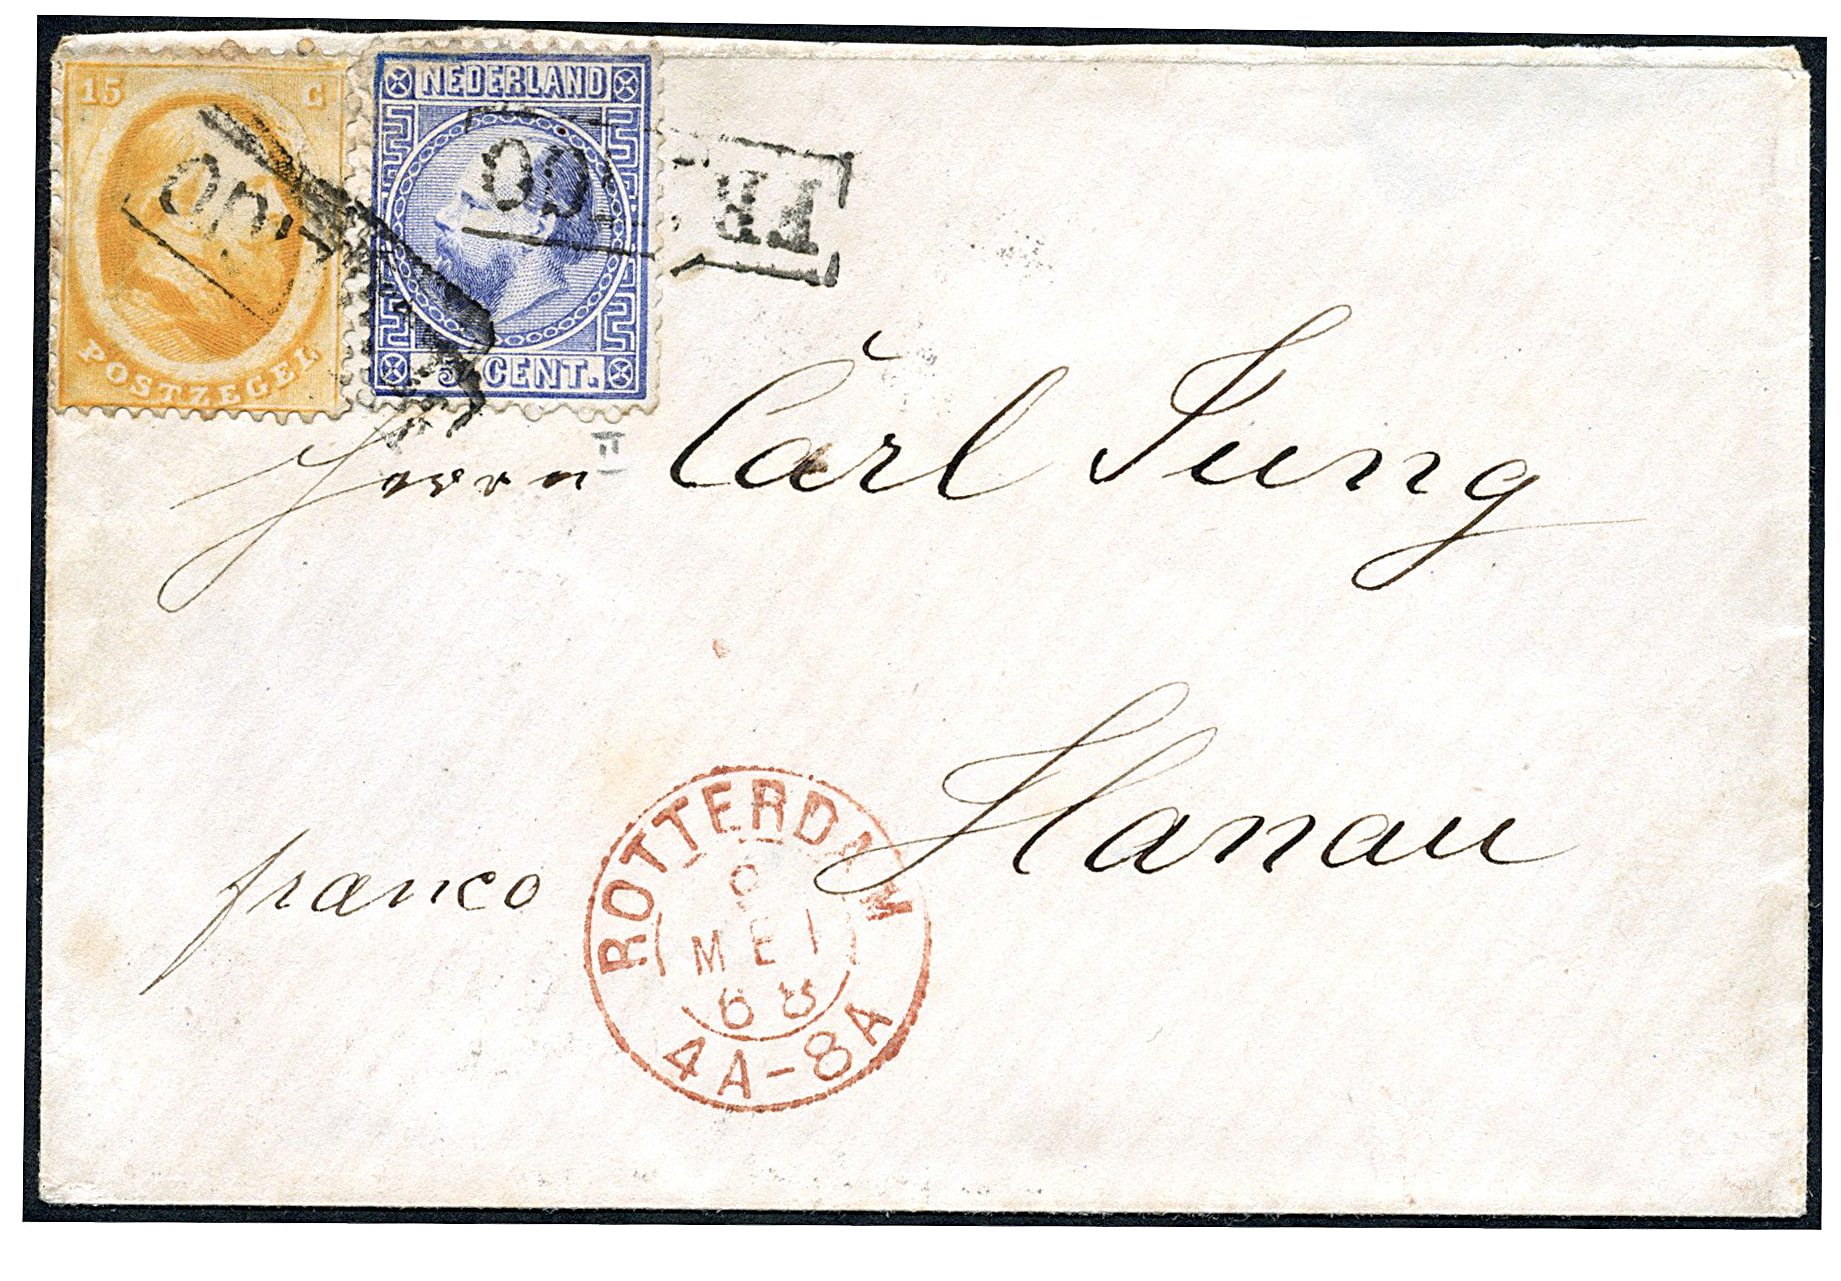 15 C
POSTZEGEL
NEDERLAND
5 CENT.
FRANCO
Herrn Carl Jung
Hanau
franco
ROTTERDAM
9
MEI
68
4A-8A